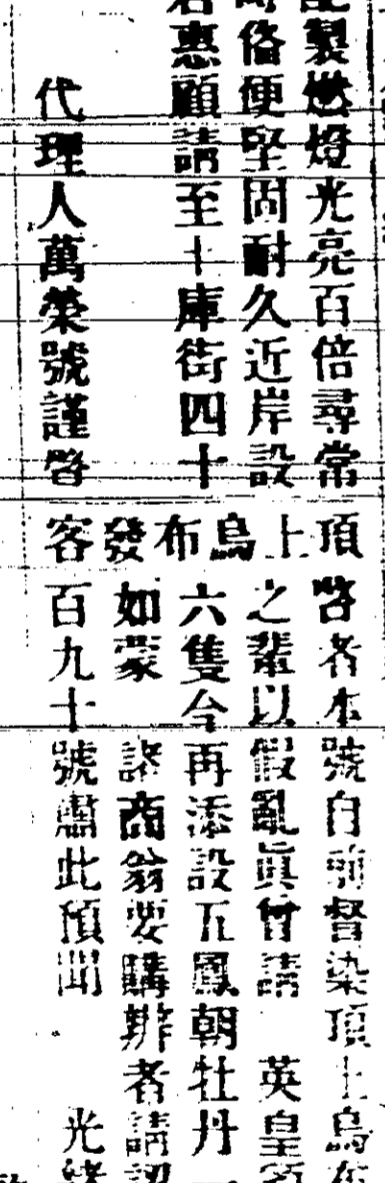 製燃燈光亮百倍尋常
俻便堅固耐久近岸設
惠顧請至十庫街四十
代理人萬榮號謹啓
頂上烏布發客
啓者本號自前督染頂上烏布
之輩以假亂眞曾請 英皇
六隻今再添設五鳳朝牡丹
如蒙 諸商翁要購辦者請認
百九十號肅此預聞 光緒